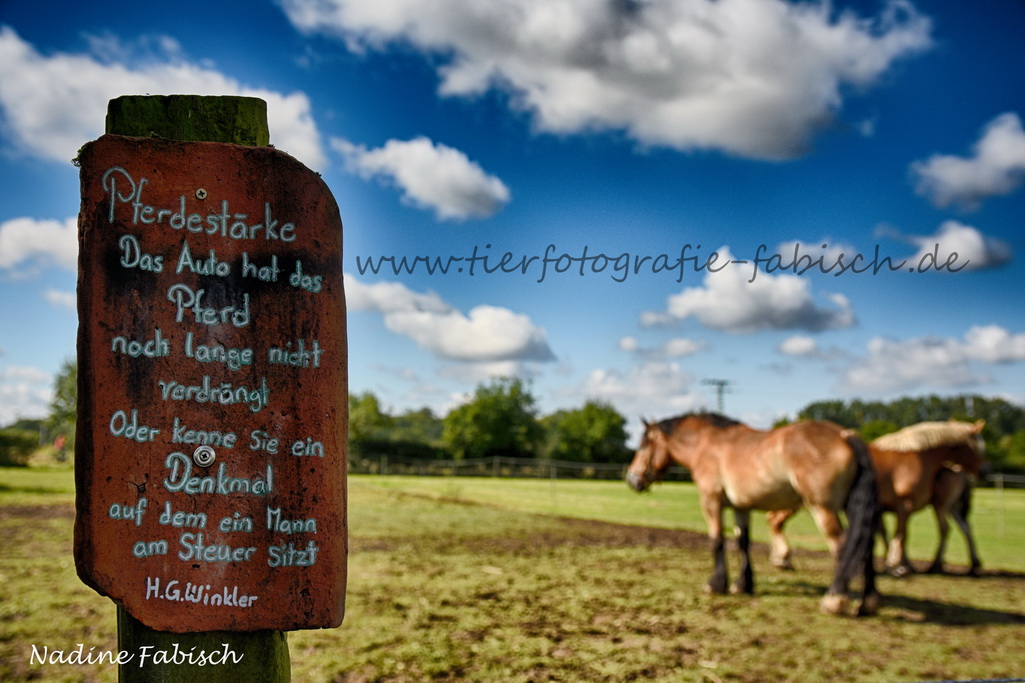 Pferdestärke
Das Auto hat das
Pferd
noch lange nicht
verdrängt
Oder kenne Sie ein
Denkmal
auf dem ein Mann
am Steuer sitzt
H.G.Winkler
www.tierfotografie-fabisch.de
Nadine Fabisch